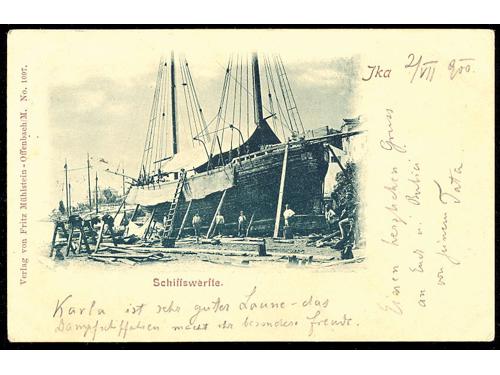 Ika
2/VII 900.
Verlag von Fritz Mühlstein - Offenbach/M. No. 1097.
Schiffswerfte.
Einen herzlichen Gruss
an Euch u.
von Eurem Tata
Karla ist sehr guter Laune - das
Dampfschiffahren macht ihr besondere Freude.